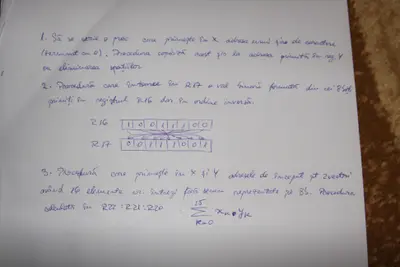 1. Să se scrie o proc. care primește în X adresa unui șir de caractere
(terminat cu 0). Procedura copiază acest șir la adresa primită în reg. Y
cu eliminarea spațiilor.
2. Procedură care întoarce în R17 o val. binară formată din cei 8 biți
primiți în registrul R16 dar în ordine inversă.
R16 1 0 0 1 1 1 0 0
R17 0 0 1 1 1 0 0 1
3. Procedură care primește în X și Y adresele de început pt 2 vectori
având 16 elemente nr. întregi fără semn reprezentate pe 8b. Procedura
calculează în R22:R21:R20 15 Σ k=0 xk • yk